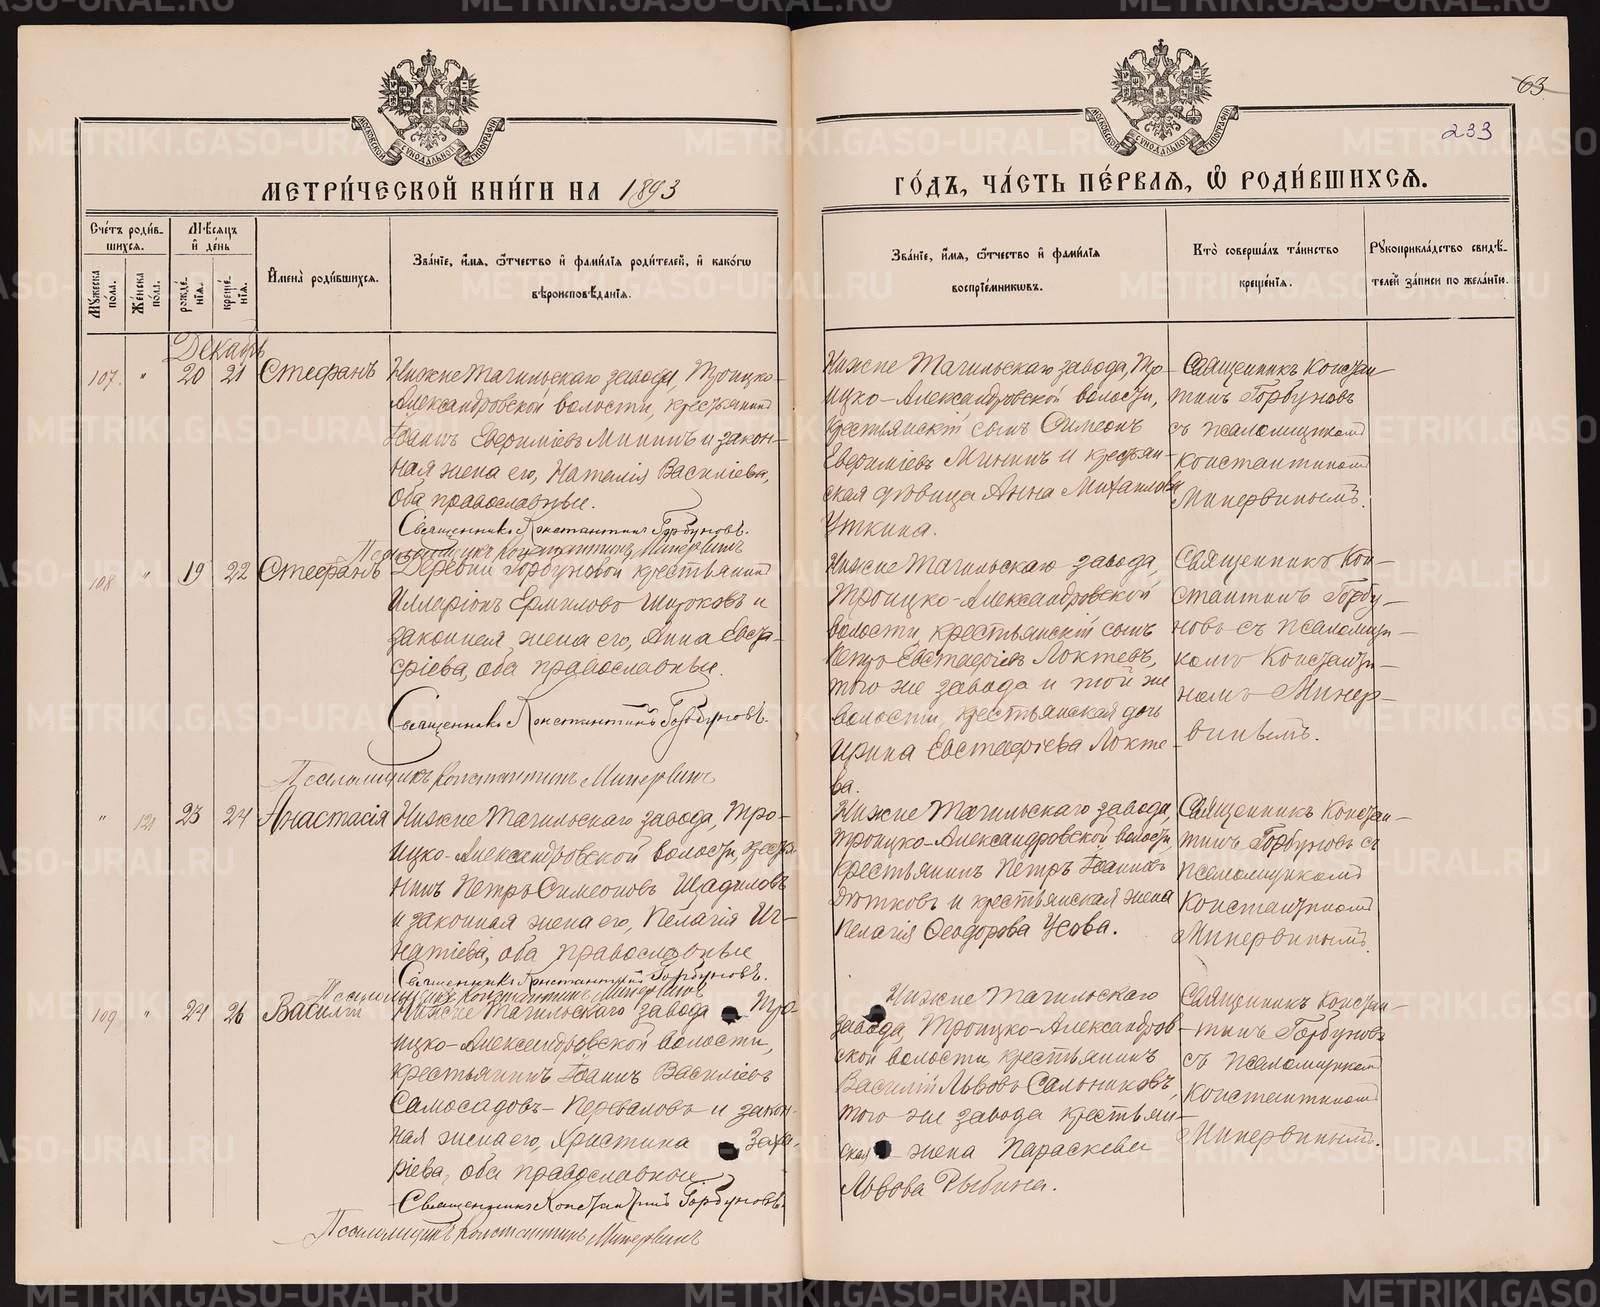 63
233
МОСКОВСКОЙ СѴНОДАЛЬНОЙ ТИПОГРАФІИ
МОСКОВСКОЙ СѴНОДАЛЬНОЙ ТИПОГРАФІИ
МЕТРИ́ЧЕСКОЙ КНИ́ГИ НА 1893
ГО́ДЪ, ЧА́СТЬ ПЕ́РВАЯ, Ѡ РОДИ́ВШИХСЯ.
Сче́тъ роди́в-
шихся.
Му́жеска по́ла.
Же́нска по́ла.
Мѣ́сяцъ и де́нь
рожде́-
нія.
креще́-
нія.
Имена̀ роди́вшихся.
Зва́ніе, и́мя, ѻ́тчество и фами́лія роди́телей, и како́гѡ
вѣроисповѣ́данія.
Зва́ніе, и́мя, ѻ́тчество и фами́лія
воспріе́мниковъ.
Кто̀ соверша́лъ та́инство
креще́нія.
Рукоприкла́дство свидѣ́-
телей за́писи по жела́нію.
Декабрь
107. " 20 21 Стефанъ
Нижне Тагильскаго завода, Троицко-
Александровской волости, крестьянинъ
Іоаннъ Евфиміевъ Мининъ и закон-
ная жена его, Наталія Василіева,
оба православные.
Священникъ Константинъ Горбуновъ.
Псаломщикъ Константинъ Минервинъ
Нижне Тагильскаго завода, Тро-
ицко-Александровской волости,
крестьянскій сынъ Симеонъ
Евфиміевъ Мининъ и крестьян-
ская дѣвица Анна Михаилова
Уткина.
Священникъ Констан-
тинъ Горбуновъ
съ псаломщикомъ
Константиномъ
Минервинымъ.
108 " 19 22 Стефанъ
Деревни Горбуновой крестьянинъ
Илларіонъ Ермиловъ Широковъ и
законная жена его, Анна Евста-
фіева, оба православные.
Священникъ Константинъ Горбуновъ.
Псаломщикъ Константинъ Минервинъ
Нижне Тагильскаго завода,
Троицко-Александровской
волости, крестьянскій сынъ
Петръ Евстафіевъ Локтевъ,
того же завода и той же
волости, крестьянская дочь
Ирина Евстафіева Локте-
ва.
Священникъ Кон-
стантинъ Горбу-
новъ съ псаломщи-
комъ Константи-
номъ Минер-
винымъ.
" 121 23 24 Анастасія
Нижне Тагильскаго завода, Тро-
ицко-Александровской волости, крестья-
нинъ Петръ Симеоновъ Щадиловъ
и законная жена его, Пелагія Иг-
натіева, оба православные
Священникъ Константинъ Горбуновъ.
Псаломщикъ Константинъ Минервинъ
Нижне Тагильскаго завода,
Троицко-Александровской волости,
крестьянинъ Петръ Іоанновъ
Дѣтковъ и крестьянская жена
Пелагія Ѳеодорова Усова.
Священникъ Констан-
тинъ Горбуновъ съ
псаломщикомъ
Константиномъ
Минервинымъ.
109 " 24 26 Василій
Нижне Тагильскаго завода Тро-
ицко-Александровской волости,
крестьянинъ Іоаннъ Василіевъ
Самосадовъ-Перваловъ и закон-
ная жена его, Христина Заха-
ріева, оба православные
Священникъ Константинъ Горбуновъ.
Псаломщикъ Константинъ Минервинъ
Нижне Тагильскаго
завода, Троицко-Александров-
ской волости крестьянинъ
Василій Львовъ Сальниковъ,
того же завода крестьян-
ская жена Параскева
Львова Рыбина.
Священникъ Констан-
тинъ Горбуновъ
съ псаломщикомъ
Константиномъ
Минервинымъ.
METRIKI.GASO-URAL.RU